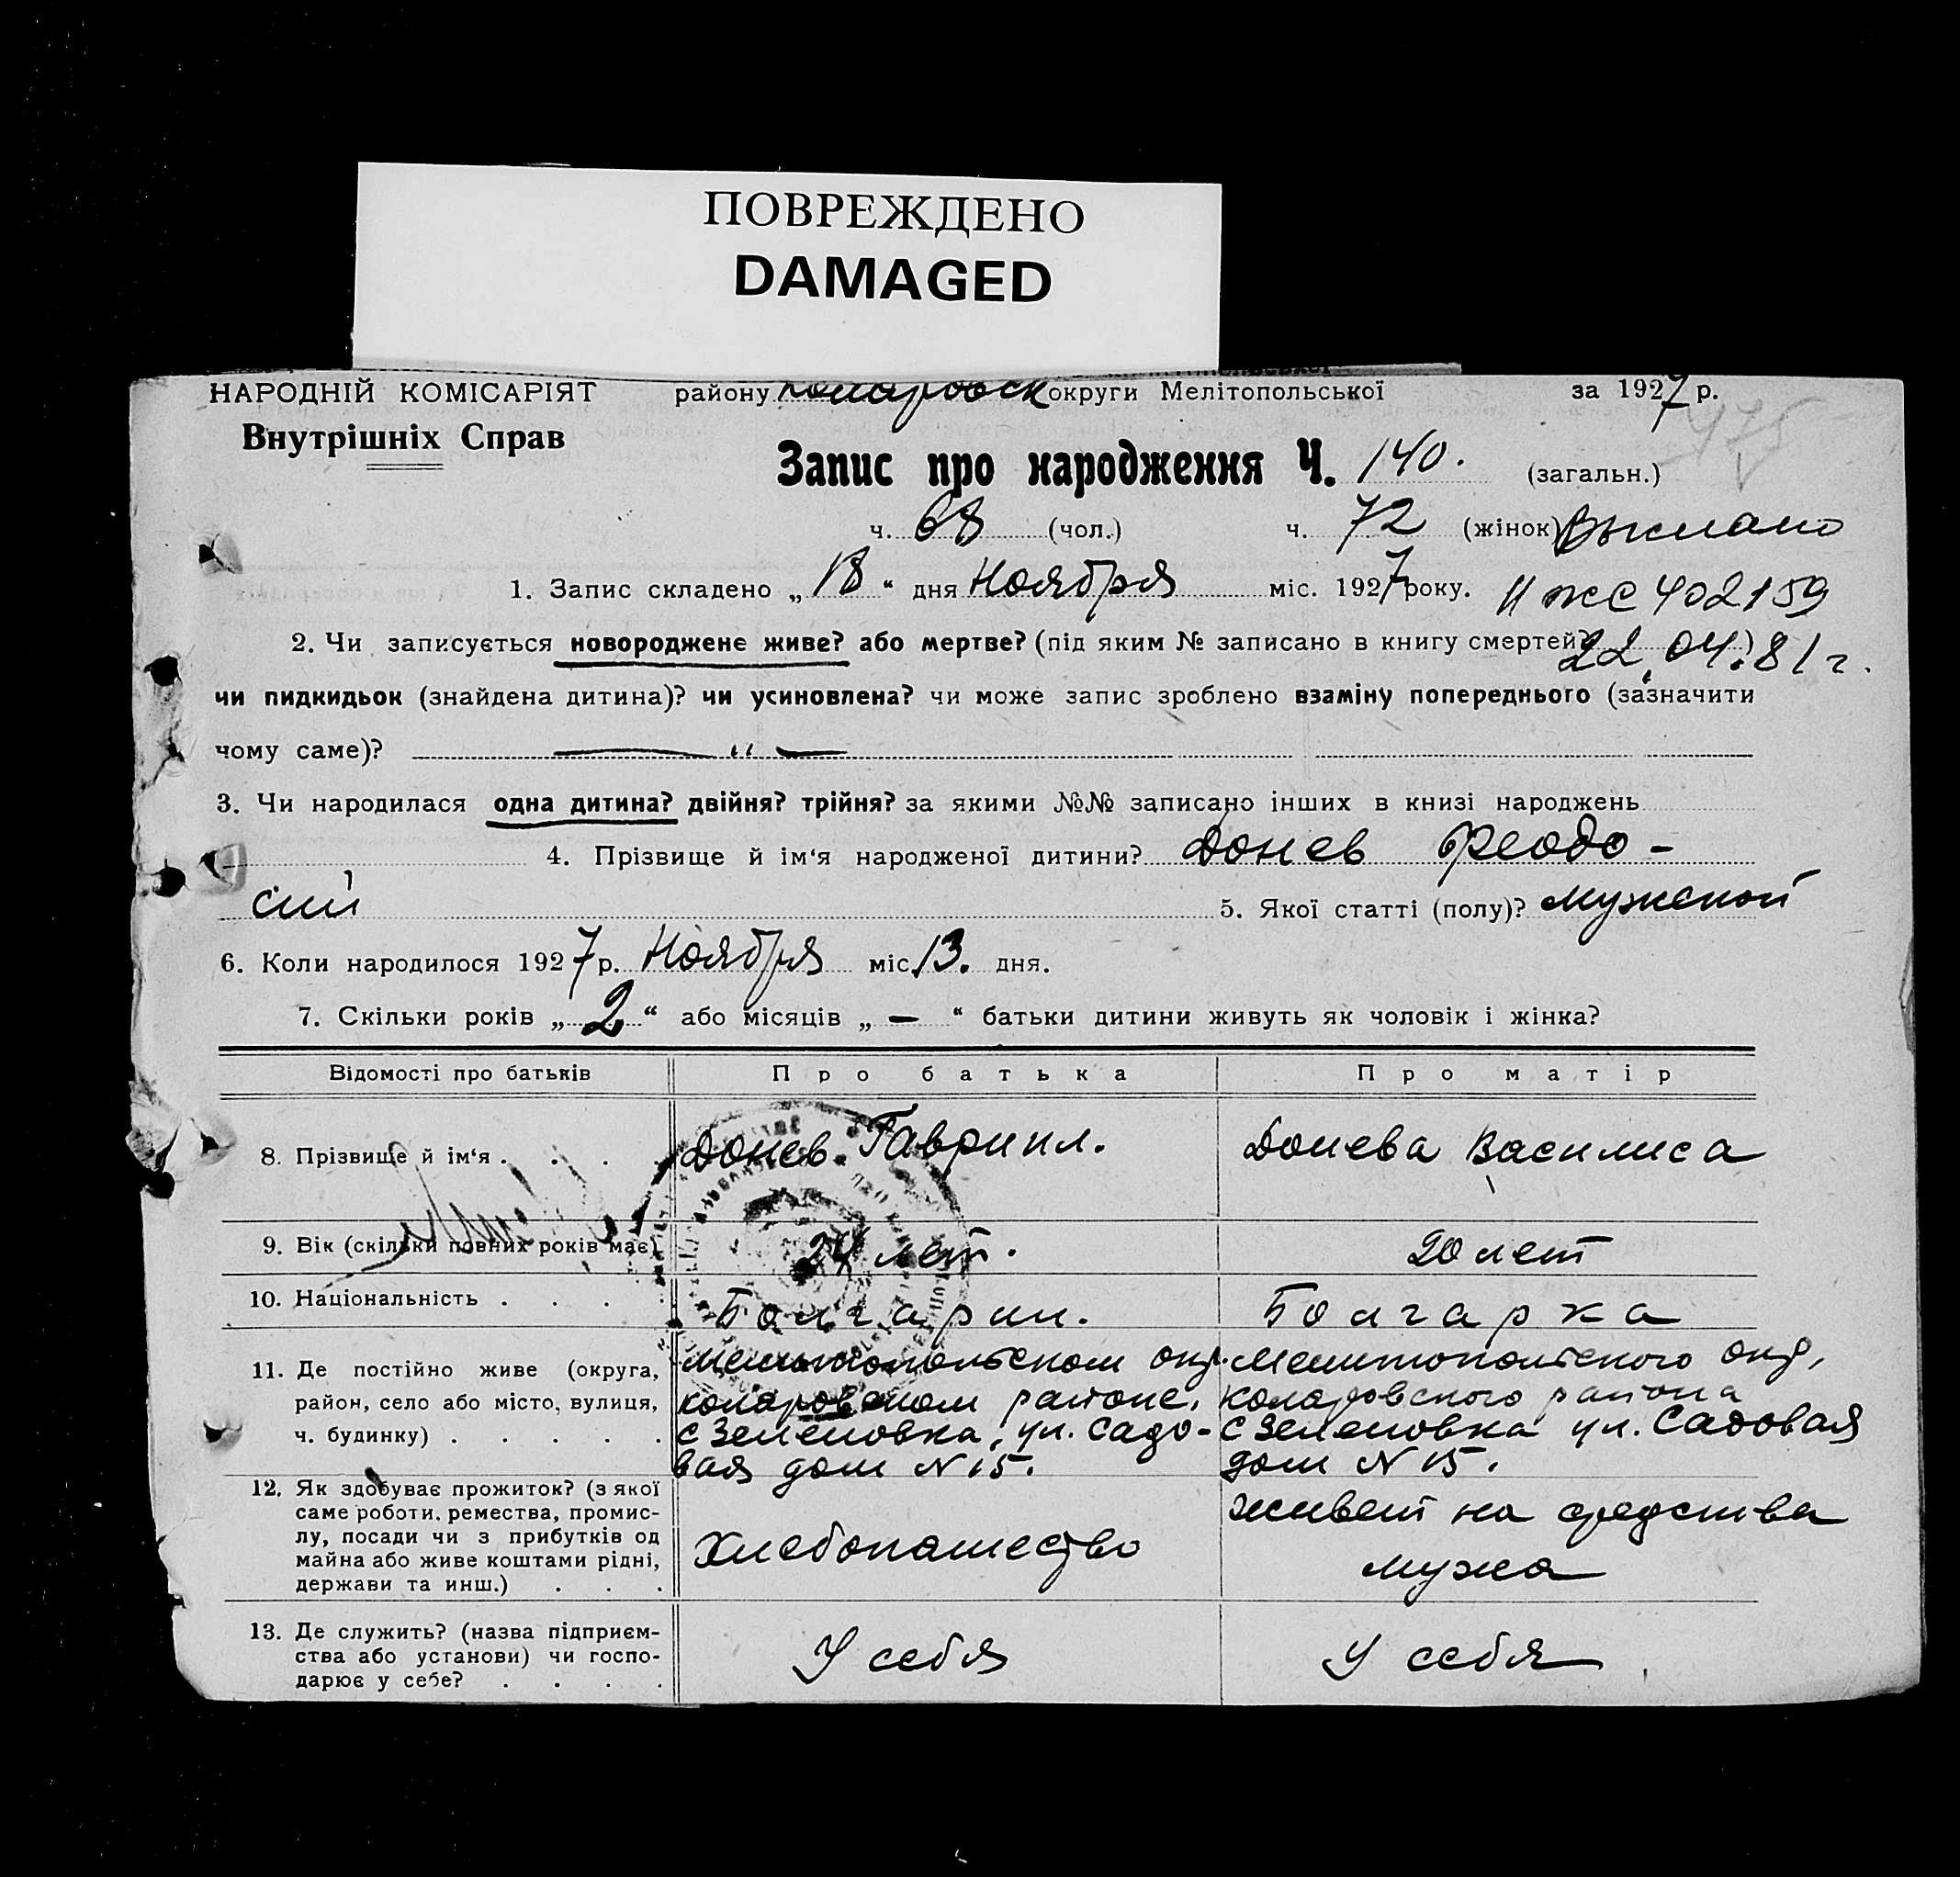 ПОВРЕЖДЕНО
DAMAGED
НАРОДНІЙ КОМІСАРІЯТ району Коларовск округи Мелітопольської за 1927 р.
Внутрішніх Справ
475
Запис про народження Ч. 140. (загальн.)
ч. 68 (чол.) ч. 72 (жінок) Выслано
1. Запис складено „18“ дня Ноября міс. 1927 року. II ЖС 402159
2. Чи записується новороджене живе? або мертве? (під яким № записано в книгу смертей? ) 22.04.81 г.
чи пидкидьок (знайдена дитина)? чи усиновлена? чи може запис зроблено взаміну попереднього (зазначити
чому саме)? — " —
3. Чи народилася одна дитина? двійня? трійня? за якими №№ записано інших в книзі народжень
4. Прізвище й ім'я народженої дитини? Донев Феодо-
сий 5. Якої статті (полу)? Мужской
6. Коли народилося 1927 р. Ноября міс. 13. дня.
7. Скільки років „2“ або місяців „—“ батьки дитини живуть як чоловік і жінка?
Відомості про батьків Про батька Про матір
8. Прізвище й ім'я . . . . Донев Гавриил. Донева Василиса
9. Вік (скільки повних років має) 24 лет. 20 лет
10. Національність . . . . Болгарин. Болгарка
11. Де постійно живе (округа, Мелитопольском окр. Мелитопольского окр,
район, село або місто, вулиця, коларовском районе, коларовского района
ч. будинку) . . . . . с Зеленовка, ул. Садо- с Зеленовка ул. Садовая
вая дом N 15. дом N 15.
12. Як здобуває прожиток? (з якої
саме роботи, ремества, промис- живет на средства
лу, посади чи з прибутків од
майна або живе коштами рідні, Хлебопашество мужа
держави та инш.) . . .
13. Де служить? (назва підприєм-
ства або установи) чи госпо- У себя У себя
дарює у себе? . . . .